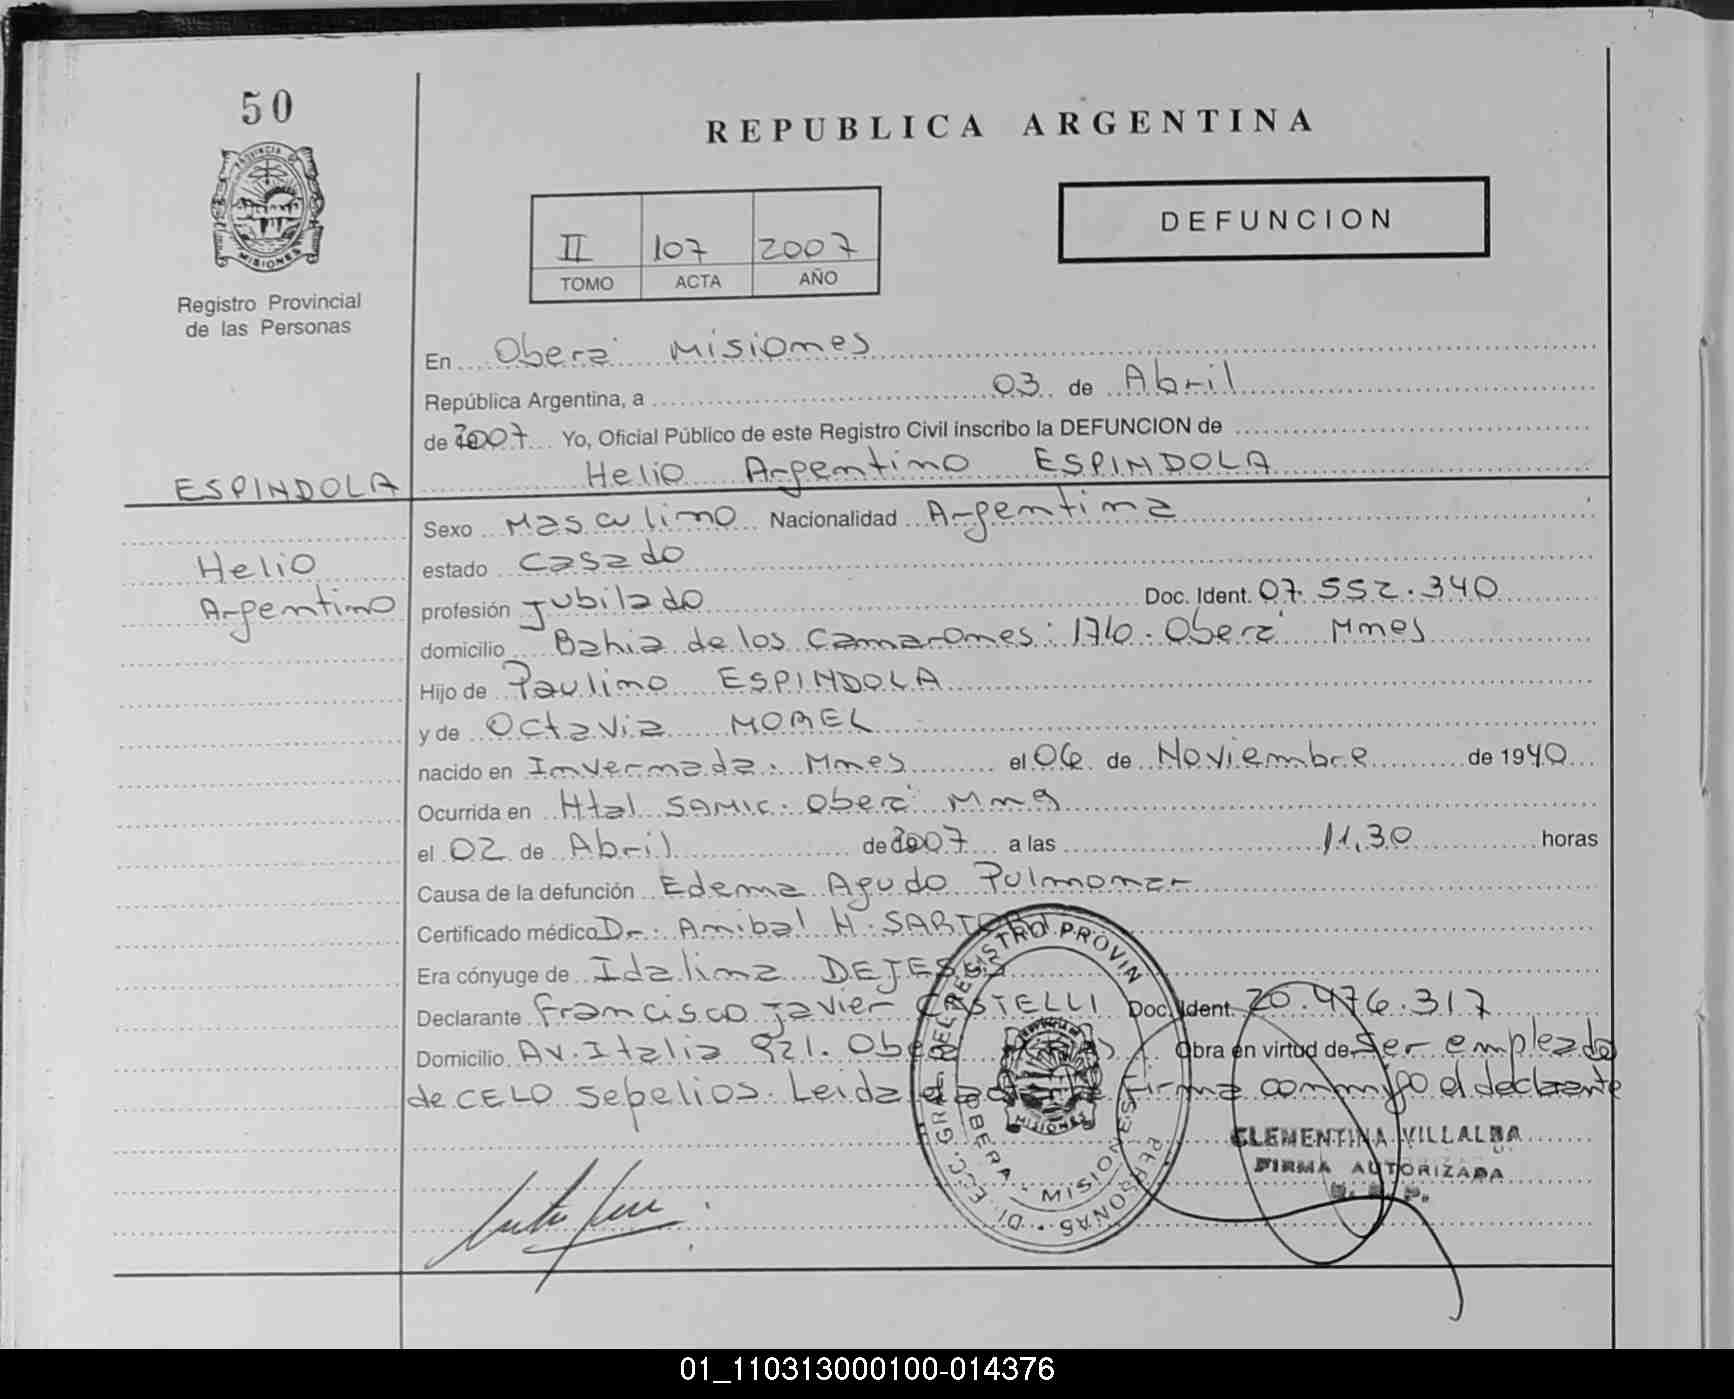 50
PROVINCIA DE
MISIONES
Registro Provincial
de las Personas
REPUBLICA ARGENTINA
II 107 2007
TOMO ACTA AÑO
DEFUNCION
En Oberá Misiones
República Argentina, a 03 de Abril
de 2007 Yo, Oficial Público de este Registro Civil inscribo la DEFUNCION de
Helio Argentino ESPINDOLA
ESPINDOLA
Helio
Argentino
Sexo Masculino Nacionalidad Argentina
estado Casado
profesión Jubilado Doc. Ident. 07.552.340
domicilio Bahia de los Camarones 1710. Oberá Mnes
Hijo de Paulino ESPINDOLA
y de Octavia MOREL
nacido en Invernada. Mnes el 06 de Noviembre de 1940
Ocurrida en Htal SAMIC. Oberá Mns
el 02 de Abril de 2007 a las 11,30 horas
Causa de la defunción Edema Agudo Pulmonar
Certificado médico Dr. Anibal H. SARTORI
Era cónyuge de Idalina DEJESUS
Declarante Francisco Javier CASTELLI Doc. Ident. 20.476.317
Domicilio Av. Italia 921. Oberá Mnes Obra en virtud de Ser empleado
de CELO Sepelios. Leida el acta la Firma conmigo el declarante
CLEMENTINA VILLALBA
FIRMA AUTORIZADA
DI ECC. GRAL DEL REGISTRO PROVIN PERSONAS
OBERA - MISIONES
MISIONES
01_110313000100-014376